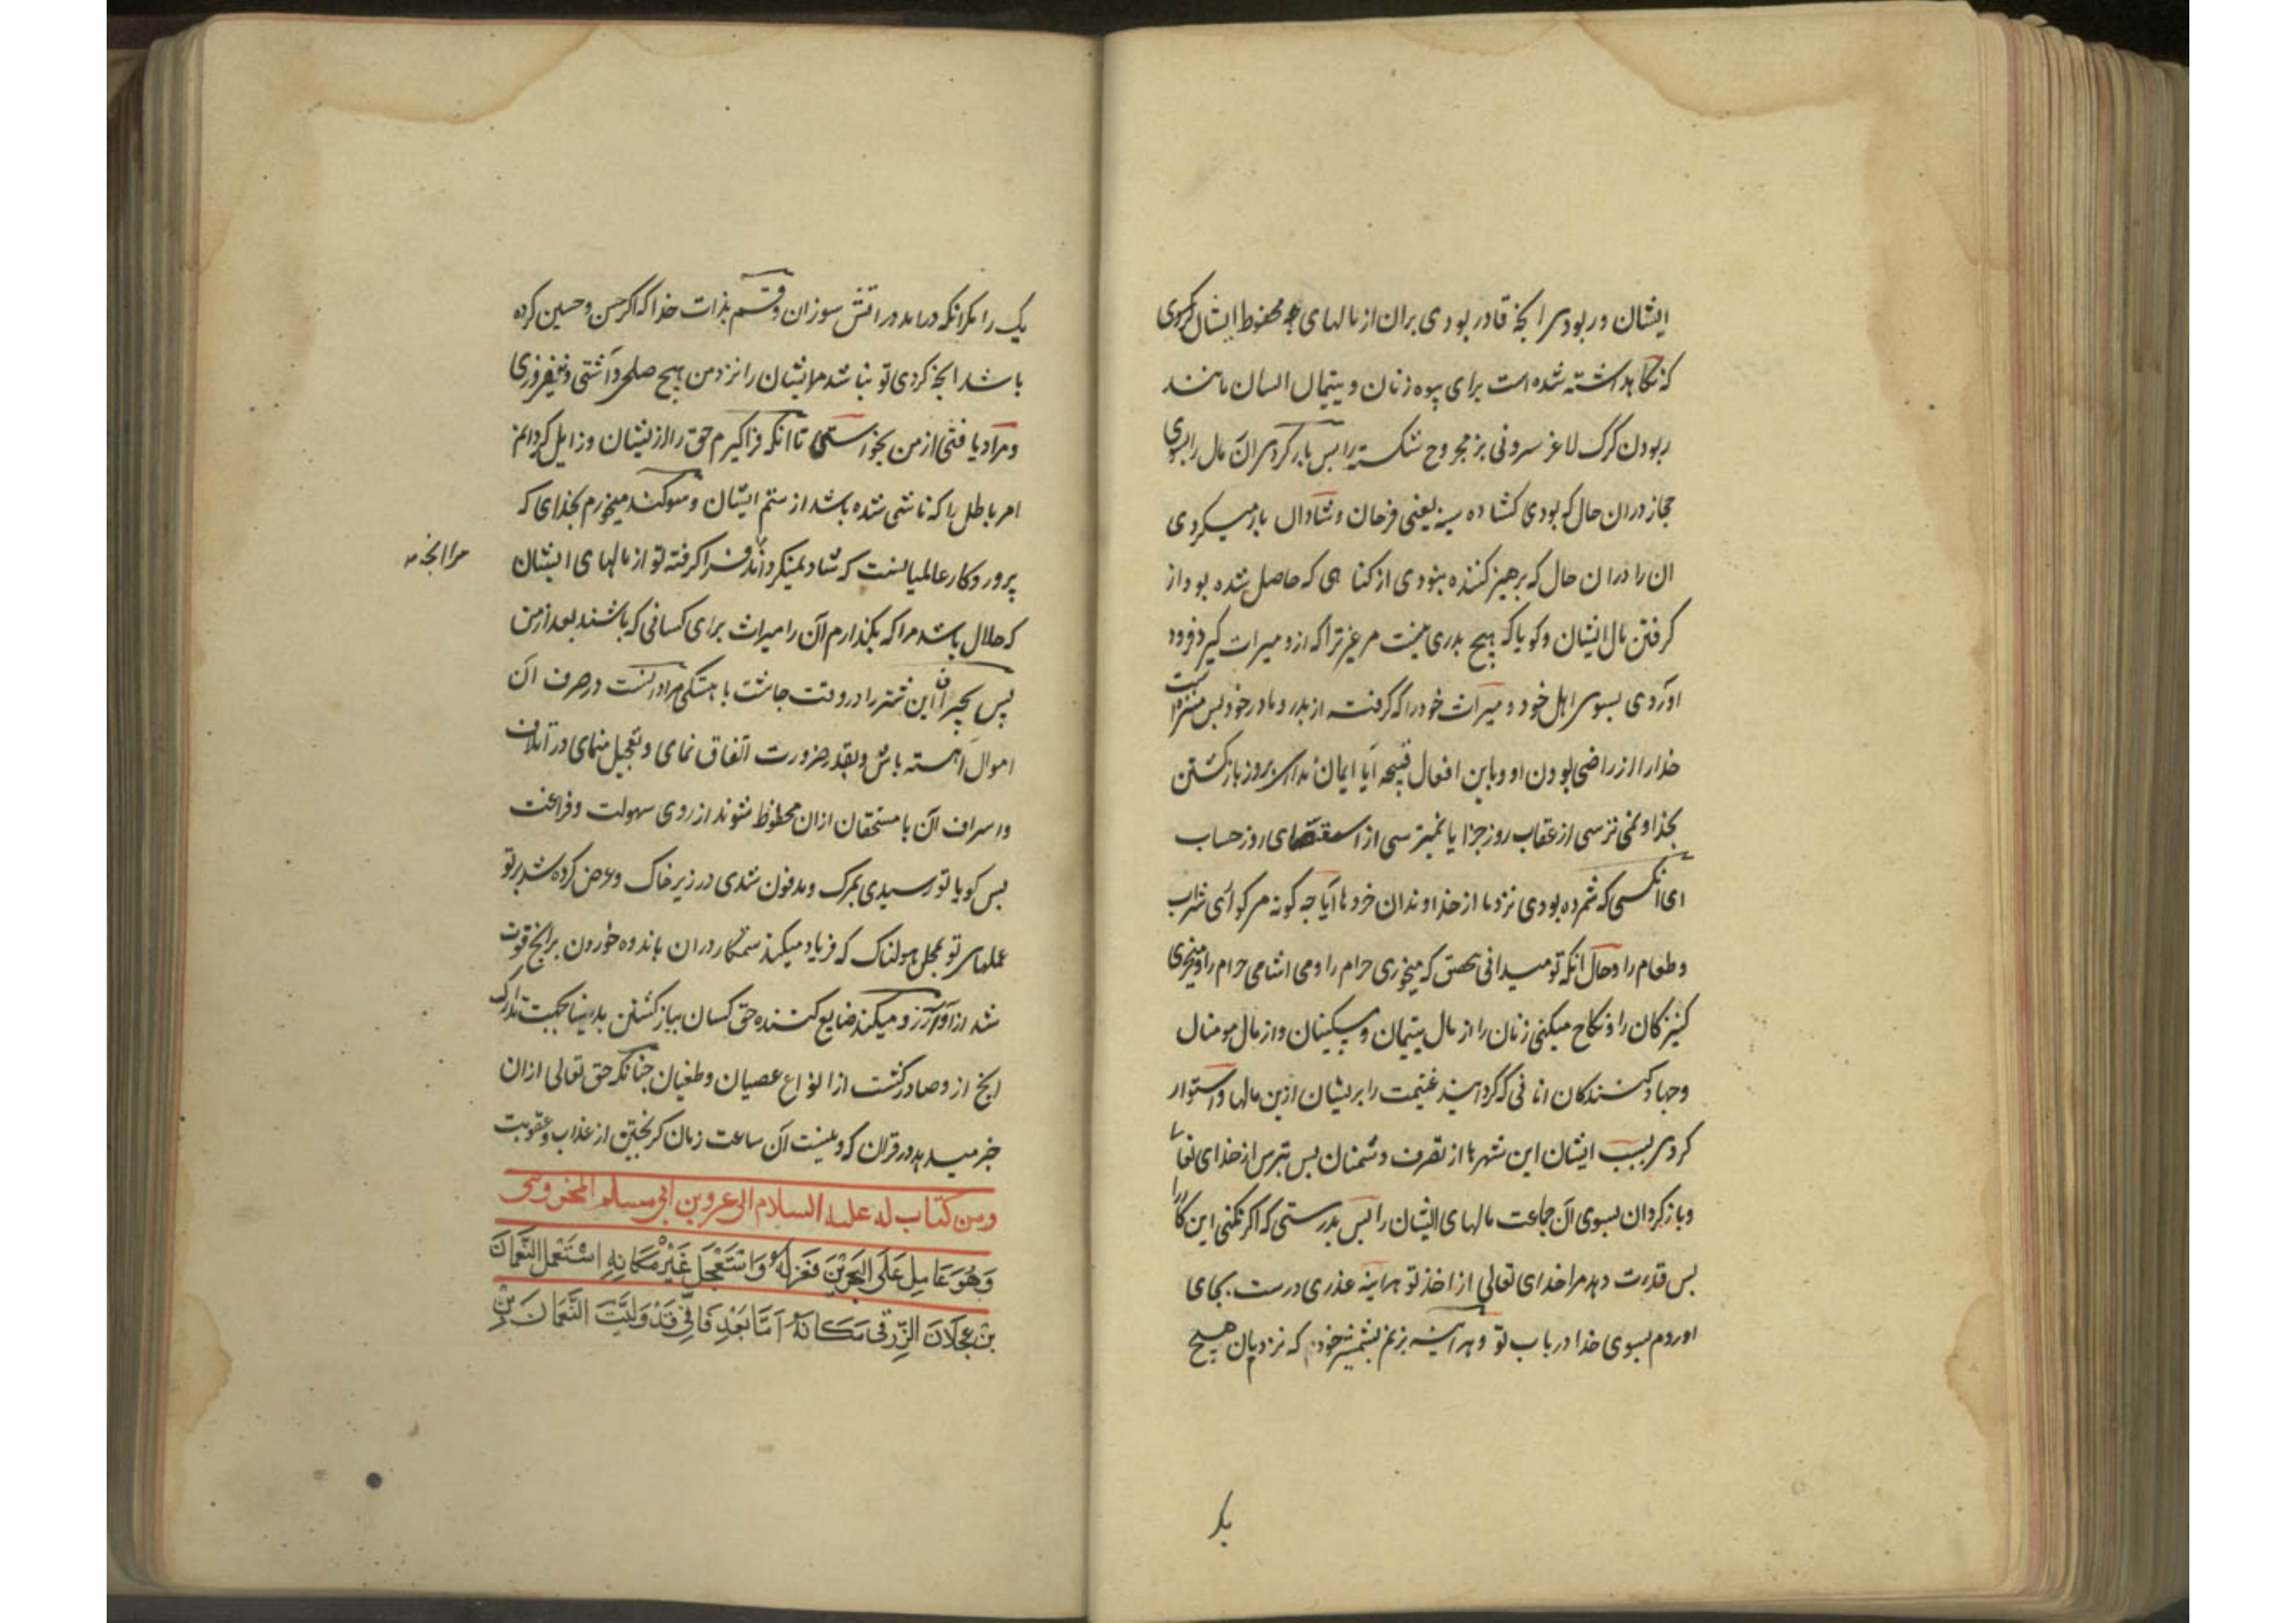 ایشان و ربودی انچه قادر بودی بران از مالهای محفوظ ایشان کردی
که نکاهداشته شده است برای بیوه زنان و یتیمان ایشان مانند
ربودن کرک لاغر سرونی بز مجروح شکسته را پس بار کردی ان مال را بسوی
حجاز دران حال که بودی کشاده سینه یعنی فرحان و شادان بار میکردی
ان را دران حال که پرهیز کننده نبودی از کناهی که حاصل شده بود از
کرفتن مال ایشان و کویا که هیچ پدری نیست مر غیر ترا که ازو میراث کیرد فرود
اوردی بسوی اهل خود و میراث خود را که کرفته از پدر و مادر خود پس منزه است
خدا را از راضی بودن او باین افعال قبیحه ایا ایمان نداری بروز بازکشتن
بخدا و نمی ترسی از عقاب روز جزا یا نمیترسی از استقصای روز حساب
ای انکسی که شمرده بودی نزد ما از خداوندان خرد ها آیا چه کونه مر کوارای شراب
و طعام را و حال انکه تو میدانی که میخوری حرام را و می اشامی حرام را و میخری
کنیزکان را و نکاح میکنی زنان را از مال یتیمان و مسکینان و از مال مومنان
و جهاد کنندکان انانی که کردانید غنیمت را بریشان ازین مالها و استوار
کردی بسبب ایشان این شهرها از تصرف دشمنان پس بترس از خدای تعالی
و بازکردان بسوی آن جماعت مالهای ایشان را پس بدرستی که اکر نکنی این کار را
پس قدرت دهد مرا خدای تعالی از اخذ تو هراینه عذری درست بجای
اوردم بسوی خدا در باب تو و هراینه بزنم بشمشیر خود که نزدم بان هیچ
یک را مکر انکه درامد در اتش سوزان و قسم بذات خدا که اکر حسن و حسین کرده
باشد انچه کردی تو نباشد مرایشان را نزد من هیچ صلح و آشتی و فیروزی
و مراد یافتی از من بخواستنی تا انکه فراکیرم حق را از ایشان و زایل کردانم
امر باطل را که ناشی شده باشد از ستم ایشان و سوکند میخورم بخدای که
پروردکار عالمیانست که شاد نمیکرداند فراکرفته تو از مالهای ایشان
مرا انچه
که حلال باشد مرا که بکذارم آن را میراث برای کسانی که باشند بعد از من
پس بچران این شتر را در وقت چاشت باهستکی در صرف آن
اموال اهسته باش و بقدر ضرورت انفاق نمای و تعجیل منمای در اتلاف
و اسراف آن تا مستحقان ازان محظوظ شوند از روی سهولت و فراغت
پس کویا تو رسیدی بمرک و مدفون شدی در زیر خاک و عرض کرده شد بر تو
عملهای تو بمحل هولناک که فریاد میکند ستمکار دران باندوه خوردن برانچه فوت
شد ازو و آرزو میکند ضایع کننده حق کسان بباز کشتن بدنیا بجهت تدارک
انچه ازو صادر کشت از انواع عصیان و طغیان چنانکه حق تعالی ازان
خبر میدهد در قران که و نیست آن ساعت زمان کریختن از عذاب و عقوبت
ومن كتاب له عليه السلام الى عمرو بن ابي مسلم المخزومى
وَهُوَ عَامِل عَلَى البَحْرَيْنِ فَعَزَلَهُ وَاسْتَعْجَلَ غَيْرَ مَكَانِهِ اسْتَعْمَلَ النُّعْمَانَ
بْنَ عَجْلَانَ الزُّرَقِي مَكَانَهُ اَمَّا بَعْدِ فَاِنِّى قَدْ وَلَّيْتَ النُّعْمَانَ بْنَ